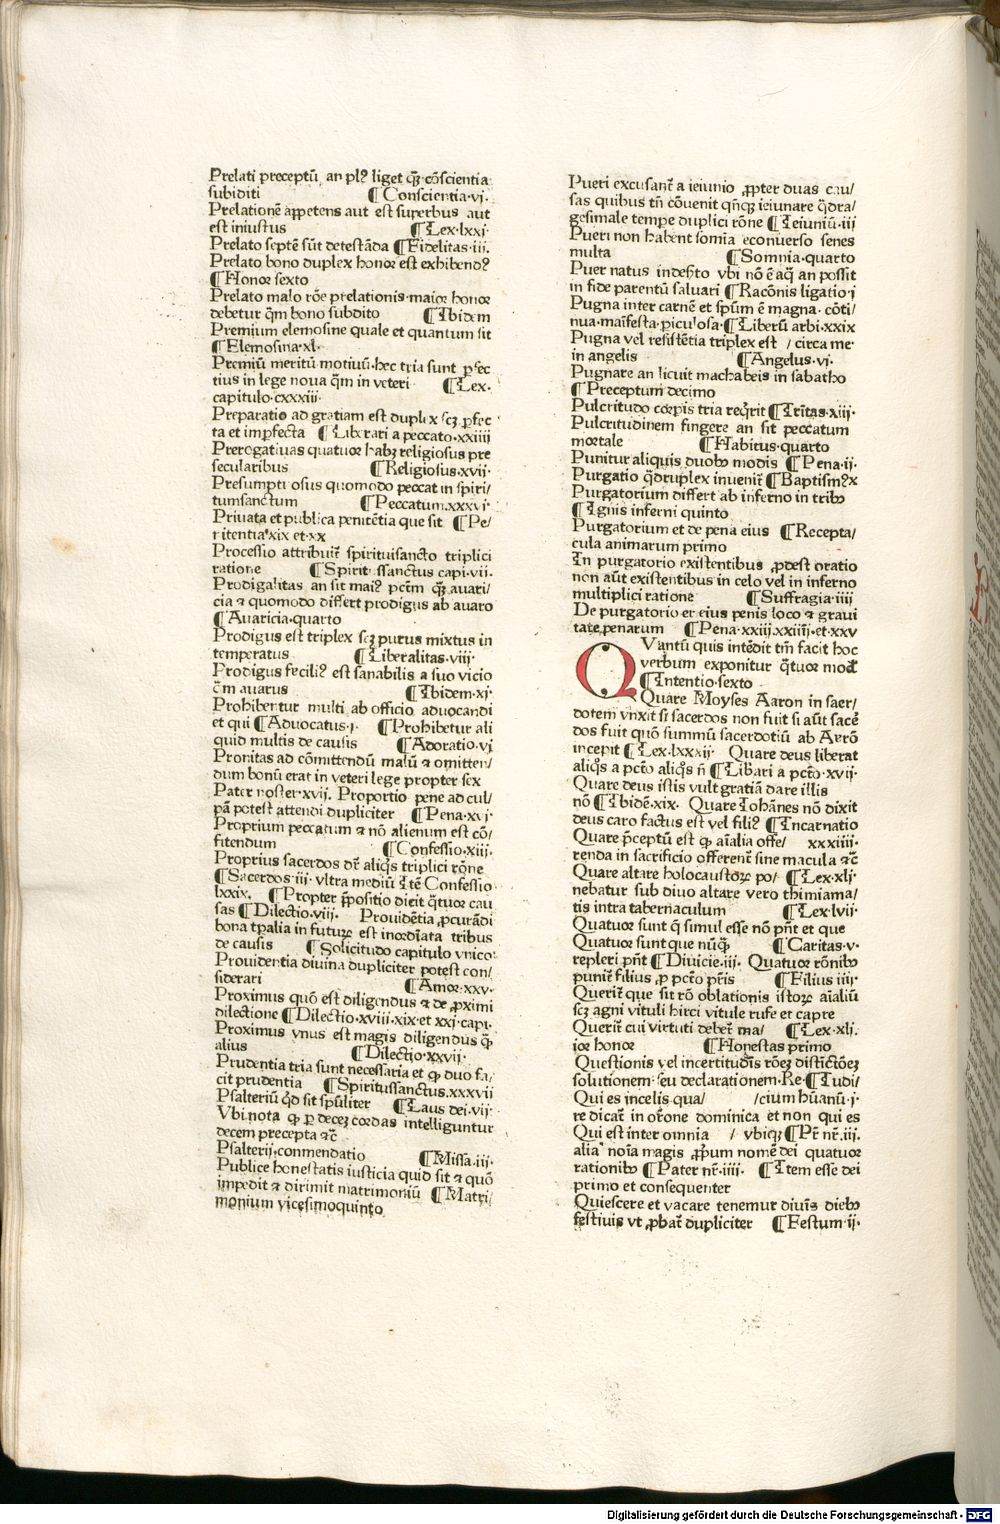 Prelati preceptū an plꝰ liget qꝫ cōscientia
subiditi ¶ Conscientia·vj·
Prelationē appetens aut est superbus aut
est iniustus ¶ Lex·lxxj·
Prelato septē sūt detestāda ¶ Fidelitas·iij·
Prelato bono duplex honor est exhibendꝰ
¶ Honor sexto
Prelato malo rōe prelationis·maior honor
debetur q̄m bono subdito ¶ Ibidem
Premium elemosine quale et quantum sit
¶ Elemosina·xl·
Premiū meritū motiuū·hec tria sunt ꝑfec
tius in lege noua q̄m in veteri ¶ Lex·
capitulo·cxxxiij·
Preparatio ad gratiam est duplex scꝫ ꝑfec
ta et imꝑfecta ¶ Liberari a peccato·xxiiij
Prerogatiuas quatuor habꝫ religiosus pre
secularibus ¶ Religiosus·xvij·
Presumptiosus quomodo peccat in spiri/
tumsanctum ¶ Peccatum·xxxvj·
Priuata et publica penitētia que sit ¶ Pe/
nitentia·xix et·xx
Processio attribuit̄ spirituisancto triplici
ratione ¶ Spiritussanctus capi·vij·
Prodigalitas an sit maiꝰ pctm̄ qꝫ auari/
cia ⁊ quomodo differt prodigus ab auaro
¶ Auaricia·quarto
Prodigus est triplex scꝫ purus mixtus in
temperatus ¶ Liberalitas·viij·
Prodigus feciliꝰ est sanabilis a suo vicio
q̄m auarus ¶ Ibidem·xj·
Prohibentur multi ab officio aduocandi
et qui ¶ Aduocatus·j· ¶ Prohibetur ali
quid multis de causis ¶ Adoratio·vj
Pronitas ad cōmittendū malū ⁊ omitten/
dum bonū erat in veteri lege propter sex
Pater noster·xvij. Proportio pene ad cul/
pā potest attendi dupliciter ¶ Pena·xvj·
Proprium peccatum ⁊ nō alienum est cō/
fitendum ¶ Confessio·xiij·
Proprius sacerdos dr̄ aliqͥs triplici rōne
¶ Sacerdos·iij· vltra mediū Itē Confessio
lxxix. ¶ Propter p̄positio dicit q̄tuor cau
sas ¶ Dilectio·viij. Prouidētia ꝓcurādi
bona tꝑalia in futuꝝ est inordīata tribus
de causis ¶ Solicitudo capitulo vnico
Prouidentia diuina dupliciter potest con/
siderari ¶ Amor·xxv·
Proximus quō est diligendus ⁊ de ꝓximi
dilectione ¶ Dilectio·xviij·xix·et xxj·capi·
Proximus vnus est magis diligendus q̄ꝫ
alius ¶ Dilectio·xxvij·
Prudentia tria sunt necessaria et ꝙ duo fa/
cit prudentia ¶ Spiritussanctus·xxxvij
Psalteriū qd̄ sit spūliter ¶ Laus dei·vij·
Vbi nota ꝙ ꝑ decez cordas intelliguntur
decem precepta ⁊c̄
Psalterij·conmendatio ¶ Missa·iij·
Publice honestatis iusticia quid sit ⁊ quō
impedit ⁊ dirimit matrimoniū ¶ Matri/
monium vicesimoquinto
Pueri excusant̄ a ieiunio ꝓpter duas cau/
sas quibus tn̄ cōuenit qn̄qꝫ ieiunare q̄dra/
gesimale tempe duplici rōne ¶ Ieiuniū·iij
Pueri non habent somia econuerso senes
multa ¶ Somnia·quarto
Puer natus indeſto vbi nō ē aq̄ an possit
in fide parentū saluari ¶ Racōnis ligatio·j
Pugna inter carnē et spūm ē magna· cōti/
nua·maīfesta·ꝑiculosa·¶ Liberū arbi·xxix
Pugna vel resistētia triplex est / circa me·
in angelis ¶ Angelus·vj·
Pugnare an licuit machabeis in sabatho
¶ Preceptum decimo
Pulcritudo corpis tria reqͥrit ¶ Trītas·xiij·
Pulcritudinem fingere an sit peccatum
mortale ¶ Habitus·quarto
Punitur aliquis duobꝰ modis ¶ Pena·ij·
Purgatio q̄druplex inuenit̄ ¶ Baptismꝰ·x
Purgatorium differt ab inferno in tribꝰ
¶ Ignis inferni quinto
Purgatorium et de pena eius ¶ Recepta/
cula animarum primo
In purgatorio existentibus ꝓdest oratio
non aūt existentibus in celo vel in inferno
multiplici ratione ¶ Suffragia·iiij
De purgatorio et eius penis loco ⁊ graui
tate penarum ¶ Pena·xxiij·xxiiij·et·xxv
QVantū quis intēdit tm̄ facit hoc
verbum exponitur q̄tuor mod
¶ Intentio·sexto
Quare Moyses Aaron in saer/
dotem vnxit si sacerdos non fuit si aūt sacē
dos fuit quō summū sacerdotiū ab Aarō
incepit ¶ Lex·lxxxij· Quare deus liberat
aliqͦs a pctō aliqͦs n̄ ¶ Libari a pctō·xvij·
Quare deus istis vult gratiā dare illis
nō ¶ Ibidē·xix. Quare Iohānes nō dixit
deus caro factus est vel filiꝰ ¶ Incarnatio
Quare p̄ceptū est ꝙ aīalia offe/ xxxiiij·
renda in sacrificio offerent̄ sine macula ⁊c̄
Quare altare holocaustoꝝ po/ ¶ Lex·xlj·
nebatur sub diuo altare vero thimiama/
tis intra tabernaculum ¶ Lex·lvij·
Quatuor sunt q̄ simul esse nō pn̄t et que
Quatuor sunt que nūq̄ꝫ ¶ Caritas·v·
repleri pn̄t ¶ Diuicie·iij· Quatuor rōnibꝰ
punit̄ filius ꝓ pctō pr̄is ¶ Filius iiij·
Querit̄ que sit rō oblationis istoꝝ aīaliū
scꝫ agni vituli hirci vitule rufe et capre
Querit̄ cui virtuti debet̄ ma/ ¶ Lex·xlj.
ior honor ¶ Honestas primo
Questionis vel incertitudīs rōez distictōez
solutionem seu declarationem·Re·¶ Iudi/
Qui es incelis qua/ /cium hūanū·j·
re dicat̄ in orōne dominica et non qui es
Qui est inter omnia / vbiqꝫ ¶ Pr̄ nr̄·iij.
alia noīa magis ꝓprium nomē dei quatuor
rationibꝰ ¶ Pater nr̄·iiij. ¶ Item esse dei
primo et consequenter
Quiescere et vacare tenemur diuīs diebꝰ
festiuis vt ꝓbat̄ dupliciter ¶ Festum·ij·
Digitalisierung gefördert durch die Deutsche Forschungsgemeinschaft - DFG